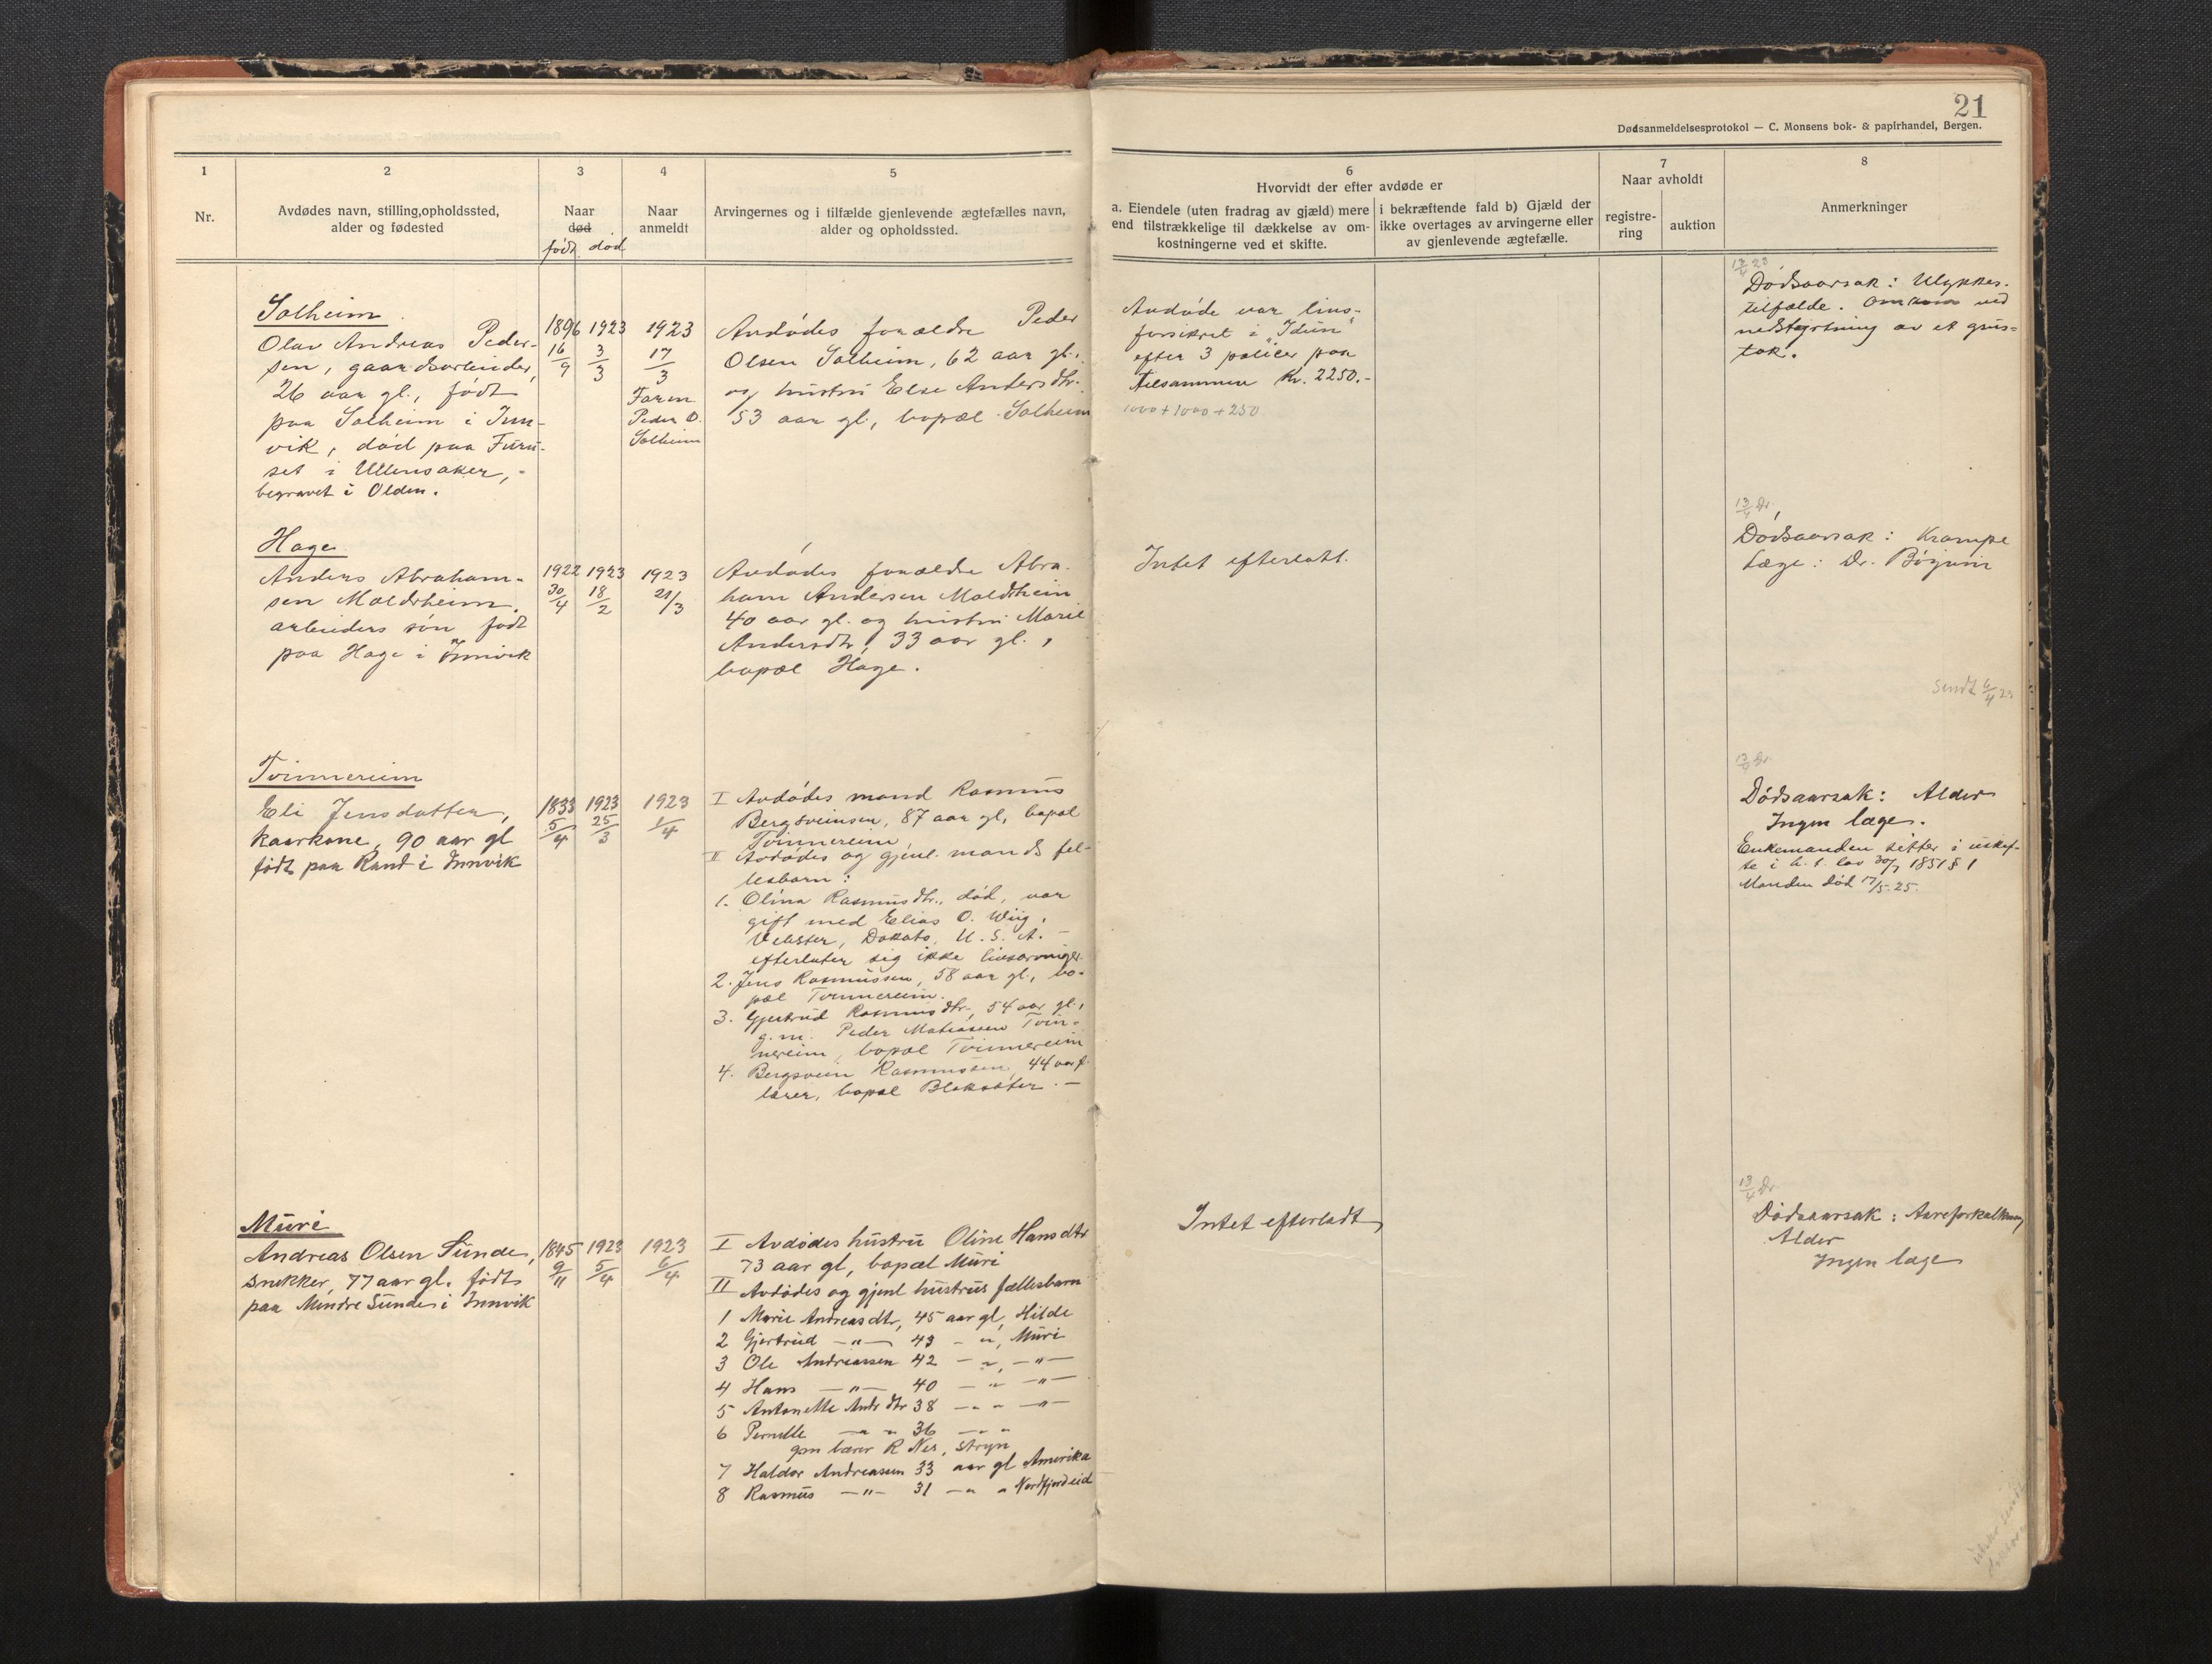 21
Dødsanmeldelsesprotokol — C. Monsens bok- & papirhandel, Bergen.
1
Nr.
2
Avdødes navn, stilling,opholdssted,
alder og fødested
3
Naar
død
født død
4
Naar
anmeldt
5
Arvingernes og i tilfælde gjenlevende ægtefælles navn,
alder og opholdssted.
6
Hvorvidt der efter avdøde er
a. Eiendele (uten fradrag av gjæld) mere
end tilstrækkelige til dækkelse av om-
kostningerne ved et skifte.
i bekræftende fald b) Gjæld der
ikke overtages av arvingerne eller
av gjenlevende ægtefælle.
7
Naar avholdt
registre-
ring
auktion
8
Anmerkninger
Solheim
Olav Andreas Peder-
sen, gaardsarbeider,
26 aar gl., født
paa Solheim i Inn-
vik, død paa Furu-
set i Ullensaker, -
begravet i Olden.
1896
16/9
1923
3/3
1923
17/3
Faren
Peder O.
Solheim
Avdødes forældre Peder
Olsen Solheim, 62 aar gl.,
og hustru Else Andersdtr.
53 aar gl., bopæl Solheim
Avdøde var livs-
forsikret i „Idun"
efter 3 policer paa
tilsammen Kr. 2250.-
1000 + 1000 + 250
13/4 23
Dødsaarsak: Ulykkes-
tilfælde. Omkom ved
nedstyrtning av et grus-
tak.
Hage
Anders Abraham-
sen Moldrheim,
arbeiders søn født
paa Hage i Innvik
1922
30/4
1923
18/2
1923
21/3
Avdødes forældre Abra-
ham Andersen Moldrheim
40 aar gl. og hustru Marie
Andersdtr, 33 aar gl.,
bopæl Hage.
Intet efterlatt.
13/4 Dr.
Dødsaarsak: Krampe
Læge: Dr. Bøjum
Sendt 6/4 23
Tvinnereim
Eli Jensdatter,
kaarkone, 90 aar gl
født paa Rand i Innvik
1833
5/4
1923
25/3
1923
1/4
I Avdødes mand Rasmus
Bergsveinsen, 87 aar gl, bopæl
Tvinnereim
II Avdødes og gjenl. mands fel-
lesbarn:
1. Olina Rasmusdtr., død, var
gift med Elias O. Wiig,
Vebster, Dakato, U. S. A. —
efterlater sig ikke livsarvinger
2. Jens Rasmussen, 58 aar gl., bo-
pæl Tvinnereim.
3. Gjertrud Rasmusdtr., 54 aar gl.,
g.m. Peder Matiassen Tvin-
nereim, bopæl Tvinnereim
4. Bergsvein Rasmussen, 44 aar gl
lærer, bopæl Bleksæter. —
13/4 Dr.
Dødsaarsak: Alder
Ingen læge.
Enkemanden sitter i uskif-
te i h. t. lov 30/7 1851 § 1
Manden død 17/5-25.
Muri
Andreas Olsen Sunde,
snekker, 77 aar gl. født
paa Mindre Sunde i Innvik
1845
9/11
1923
5/4
1923
6/4
I Avdødes hustru Oline Hansdtr
73 aar gl, bopæl Muri
II Avdødes og gjenl hustrus fællesbarn
1 Marie Andreasdtr, 45 aar gl, Hilde
2 Gjertrud —"— 43 — ", Muri
3 Ole Andreassen 42 — ", —"—
4 Hans —"— 40 — " —"—
5 Antonette Andrdtr 38 — " " —"—
6 Pernille — " " 36 — " "
gm lærer R Nes, Stryn
7 Haldor Andreassen 33 aar gl Amerika
8 Rasmus —"— 31 — " " Nordfjordeid
Intet efterladt
13/4 Dr.
Dødsaarsak: Aareforkalkning
Alder
Ingen læge